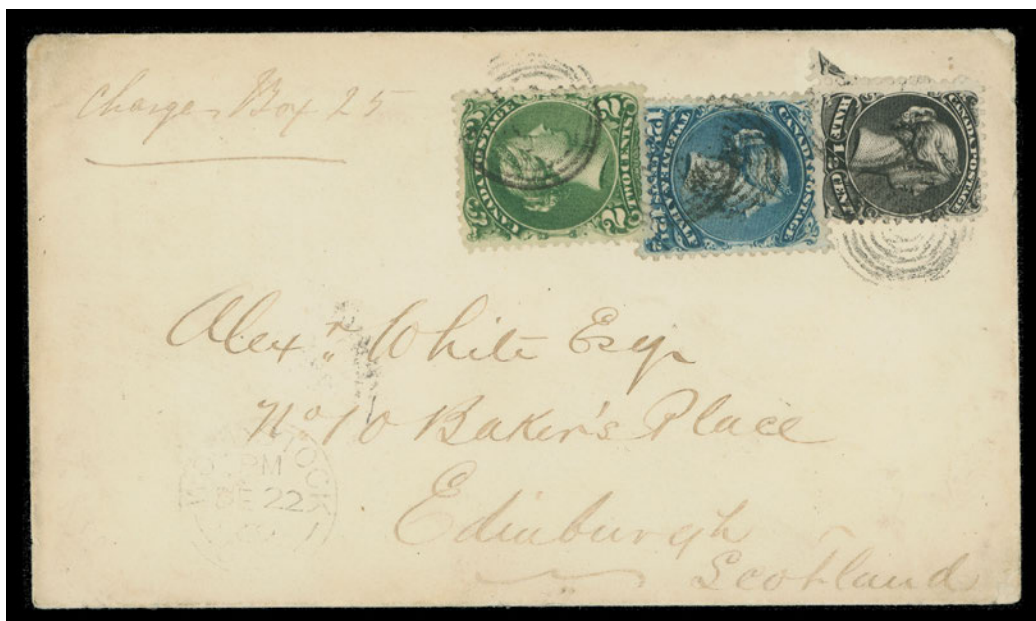 Charge Box 25
CANADA POSTAGE
2 TWO CENTS 2
CANADA POSTAGE
12½ TWELVE & A HALF CENTS 12½
CANADA POSTAGE
HALF CENT
Alexr. White Esqr
No 10 Baker's Place
Edinburgh
Scotland
PM
DE 22